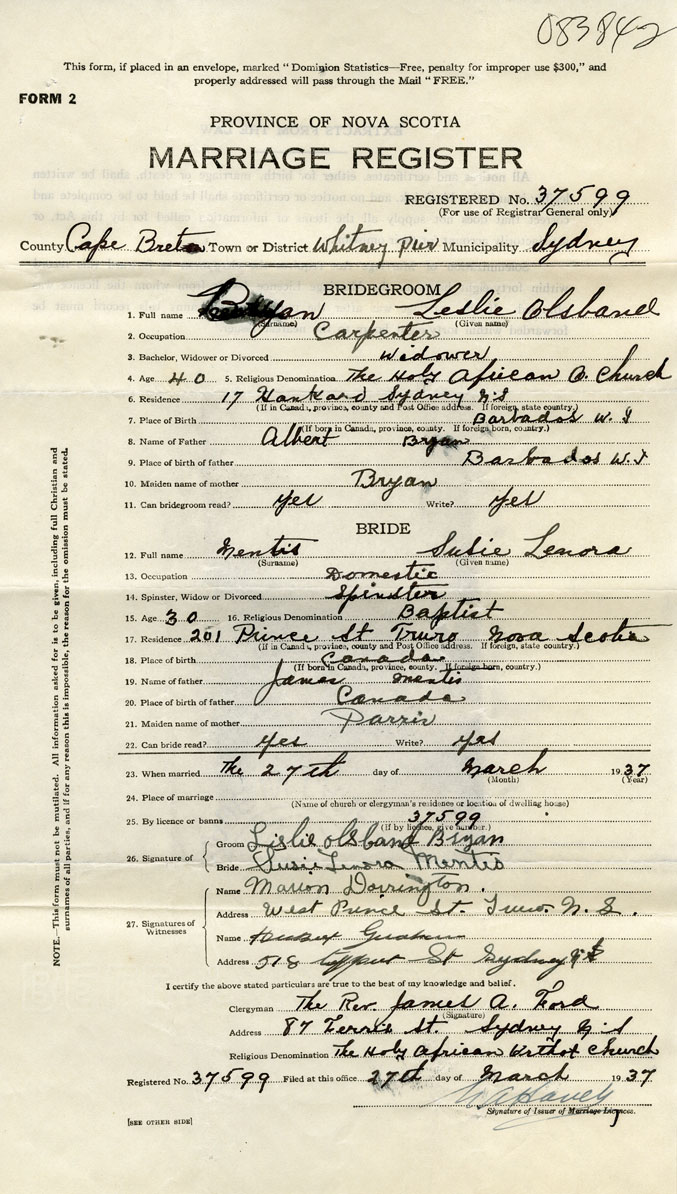 083842
This form, if placed in an envelope, marked “ Dominion Statistics—Free, penalty for improper use $300,” and
properly addressed will pass through the Mail “ FREE.”
FORM 2
PROVINCE OF NOVA SCOTIA
MARRIAGE REGISTER
REGISTERED No. 37599
(For use of Registrar General only)
County Cape Breton Town or District Whitney Pier Municipality Sydney
BRIDEGROOM
1. Full name Bryan Leslie Olsband
(Surname) (Given name)
2. Occupation Carpenter
3. Bachelor, Widower or Divorced widower
4. Age 40 5. Religious Denomination The Holy African O. Church
6. Residence 17 Hankard Sydney N.S
(If in Canada, province, county and Post Office address. If foreign, state country.)
7. Place of Birth Barbados W. I
(If born in Canada, province, county. If foreign born, country.)
8. Name of Father Albert Bryan
9. Place of birth of father Barbados W. I
10. Maiden name of mother Bryan
11. Can bridegroom read? Yes Write? Yes
BRIDE
12. Full name Mentis Susie Lenora
(Surname) (Given name)
13. Occupation Domestic
14. Spinster, Widow or Divorced Spinster
15. Age 30 16. Religious Denomination Baptist
17. Residence 201 Prince St Truro Nova Scotia
(If in Canada, province, county and Post Office address. If foreign, state country.)
18. Place of birth Canada
(If born in Canada, province, county. If foreign born, country.)
19. Name of father James Mentis
20. Place of birth of father Canada
21. Maiden name of mother Parris
22. Can bride read? Yes Write? Yes
23. When married The 27th day of March 1937
(Month) (Year)
24. Place of marriage
(Name of church or clergyman's residence or location of dwelling house)
25. By licence or banns 37599
(If by licence, give number.)
26. Signature of
Groom Leslie olsband Bryan
Bride Susie Lenora Mentis
27. Signatures of Witnesses
Name Marion Dorrington.
Address West Prince St. Truro. N. S.
Name
Address 518 St Sydney N S
I certify the above stated particulars are true to the best of my knowledge and belief.
Clergyman The Rev. James A. Ford
(Signature)
Address 87 St. Sydney N. S
Religious Denomination The Holy African Orthox Church
Registered No. 37599 Filed at this office 27th day of March 1937
Signature of Issuer of Marriage Licences.
[SEE OTHER SIDE]
NOTE.—This form must not be mutilated. All information asked for is to be given, including full Christian and
surnames of all parties, and if for any reason this is impossible, the reason for the omission must be stated.